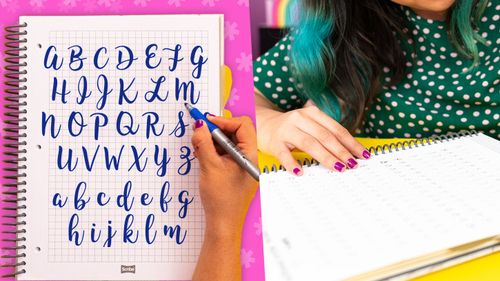 A B C D E F G
H I J K L M
N O P Q R S
U V W X Y Z
a b c d e f g
h i j k l m
Scribe